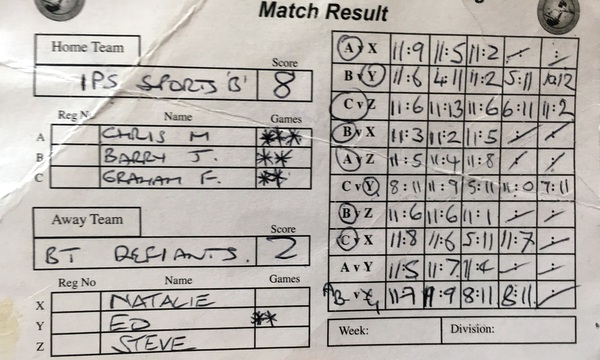 Match Result
Home Team
Score
IPS SPORTS 'B' 8
Reg N Name Games
A CHRIS M ***
B BARRY J. **
C GRAHAM F. **
Away Team
Score
BT DEFIANTS. 2
Reg No Name Games
X NATALIE
Y ED **
Z STEVE
A v X 11:9 11:5 11:2 : :
B v Y 11:6 4:11 11:2 5:11 10:12
C v Z 11:6 11:13 11:6 6:11 11:2
B v X 11:3 11:2 11:5 : :
A v Z 11:5 11:4 11:8 : :
C v Y 8:11 11:9 5:11 11:0 7:11
B v Z 11:6 11:6 11:1 : :
C v X 11:8 11:6 5:11 11:7 :
A v Y 11:5 11:7 11:4 : :
v 11:7 11:9 8:11 8:11 :
Week: Division: